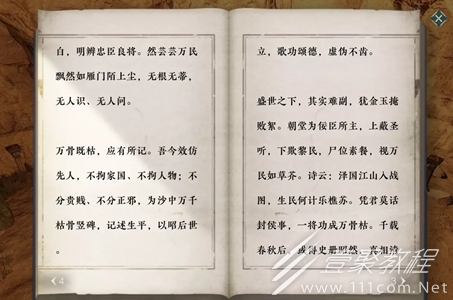 白，明辨忠臣良将。然芸芸万民
飘然如雁门陌上尘，无根无蒂，
无人识、无人问。
万骨既枯，应有所记。吾今效仿
先人，不拘家国、不拘人物；不
分贵贱、不分正邪，为沙中万千
枯骨竖碑，记述生平，以昭后世
。
4
立，歌功颂德，虚伪不齿。
盛世之下，其实难副，犹金玉掩
败絮。朝堂为佞臣所主，上蔽圣
听，下欺黎民，尸位素餐，视万
民如草芥。诗云：泽国江山入战
图，生民何计乐樵苏。凭君莫话
封侯事，一将功成万骨枯。千载
春秋后，或得史册昭然，真相
3
壹聚教程
www.111com.Net